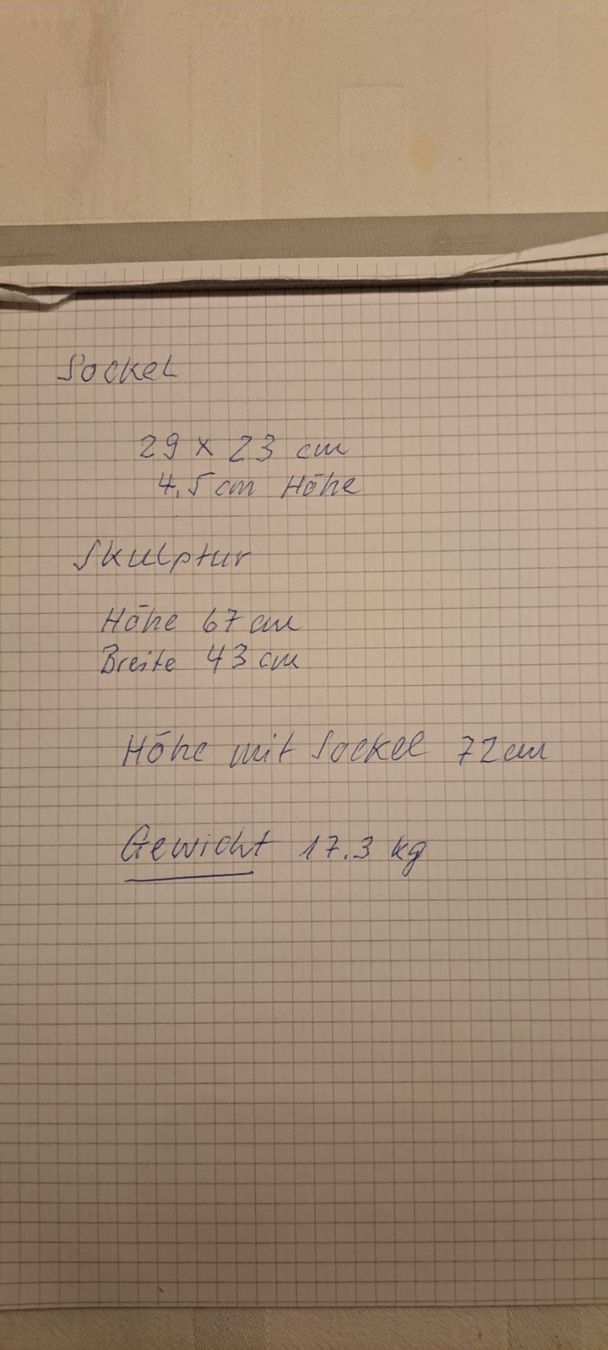 Sockel
29 x 23 cm
4.5 cm Höhe
Skulptur
Höhe 67 cm
Breite 43 cm
Höhe mit Sockel 72 cm
Gewicht 17.3 kg